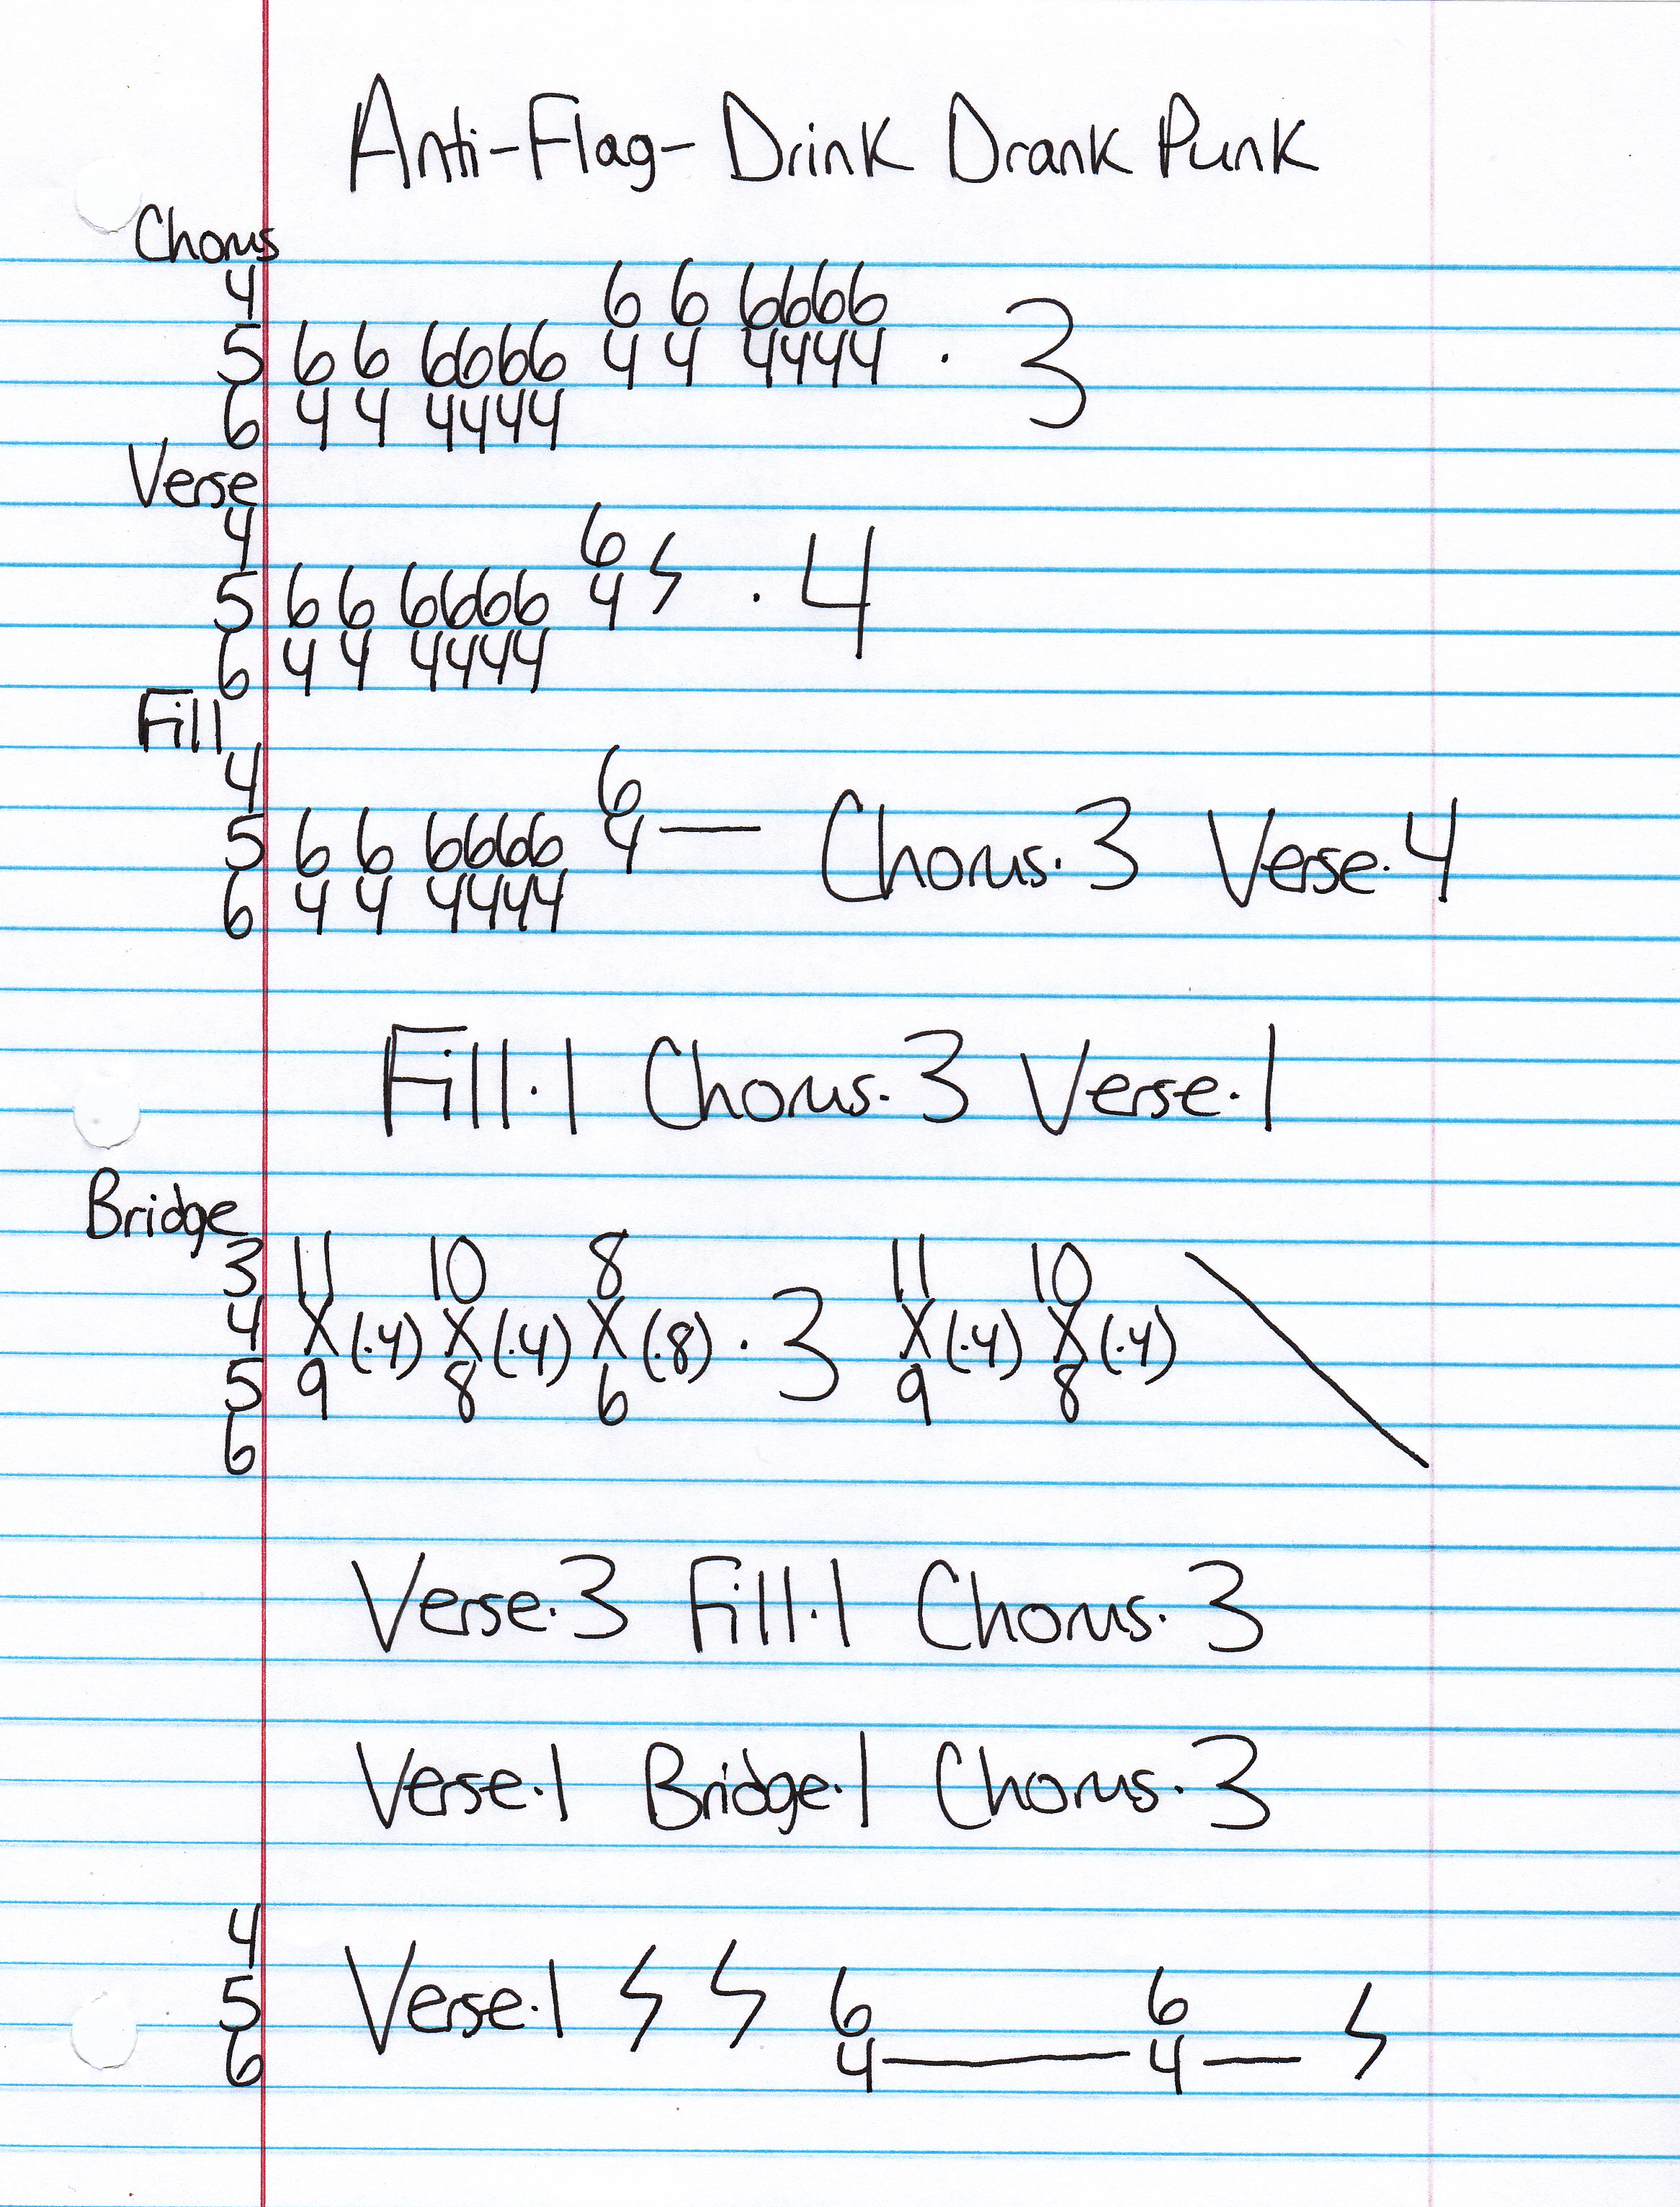 Anti-Flag- Drink Drank Punk
Chorus
4 6 6 6666
5 6 6 6666 4 4 4444 · 3
6 4 4 4444
Verse
4 6
5 6 6 6666 4 · 4
6 4 4 4444
Fill
4 6
5 6 6 6666 4 — Chorus·3 Verse·4
6 4 4 4444
Fill·1 Chorus·3 Verse·1
Bridge
3 11 10 8 11 10
4 X (·4) X (·4) X (·8) · 3 X (·4) X (·4)
5 9 8 6 9 8
6
Verse·3 Fill·1 Chorus·3
Verse·1 Bridge·1 Chorus·3
4
5 Verse·1 6 6
6 4 — 4 —